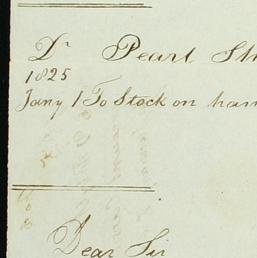 Dr Pearl
1825
Jany 1 To Stock on
Dear Sir